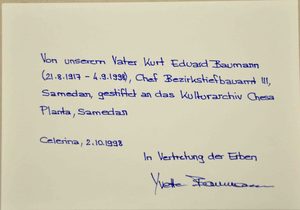 Von unserem Vater Kurt Eduard Baumann
(21.8.1917 - 4.9.1998), Chef Bezirkstiefbauamt III,
Samedan, gestiftet an das Kulturarchiv Chesa
Planta, Samedan
Celerina, 2.10.1998
In Vertretung der Erben
Yvette Baumann